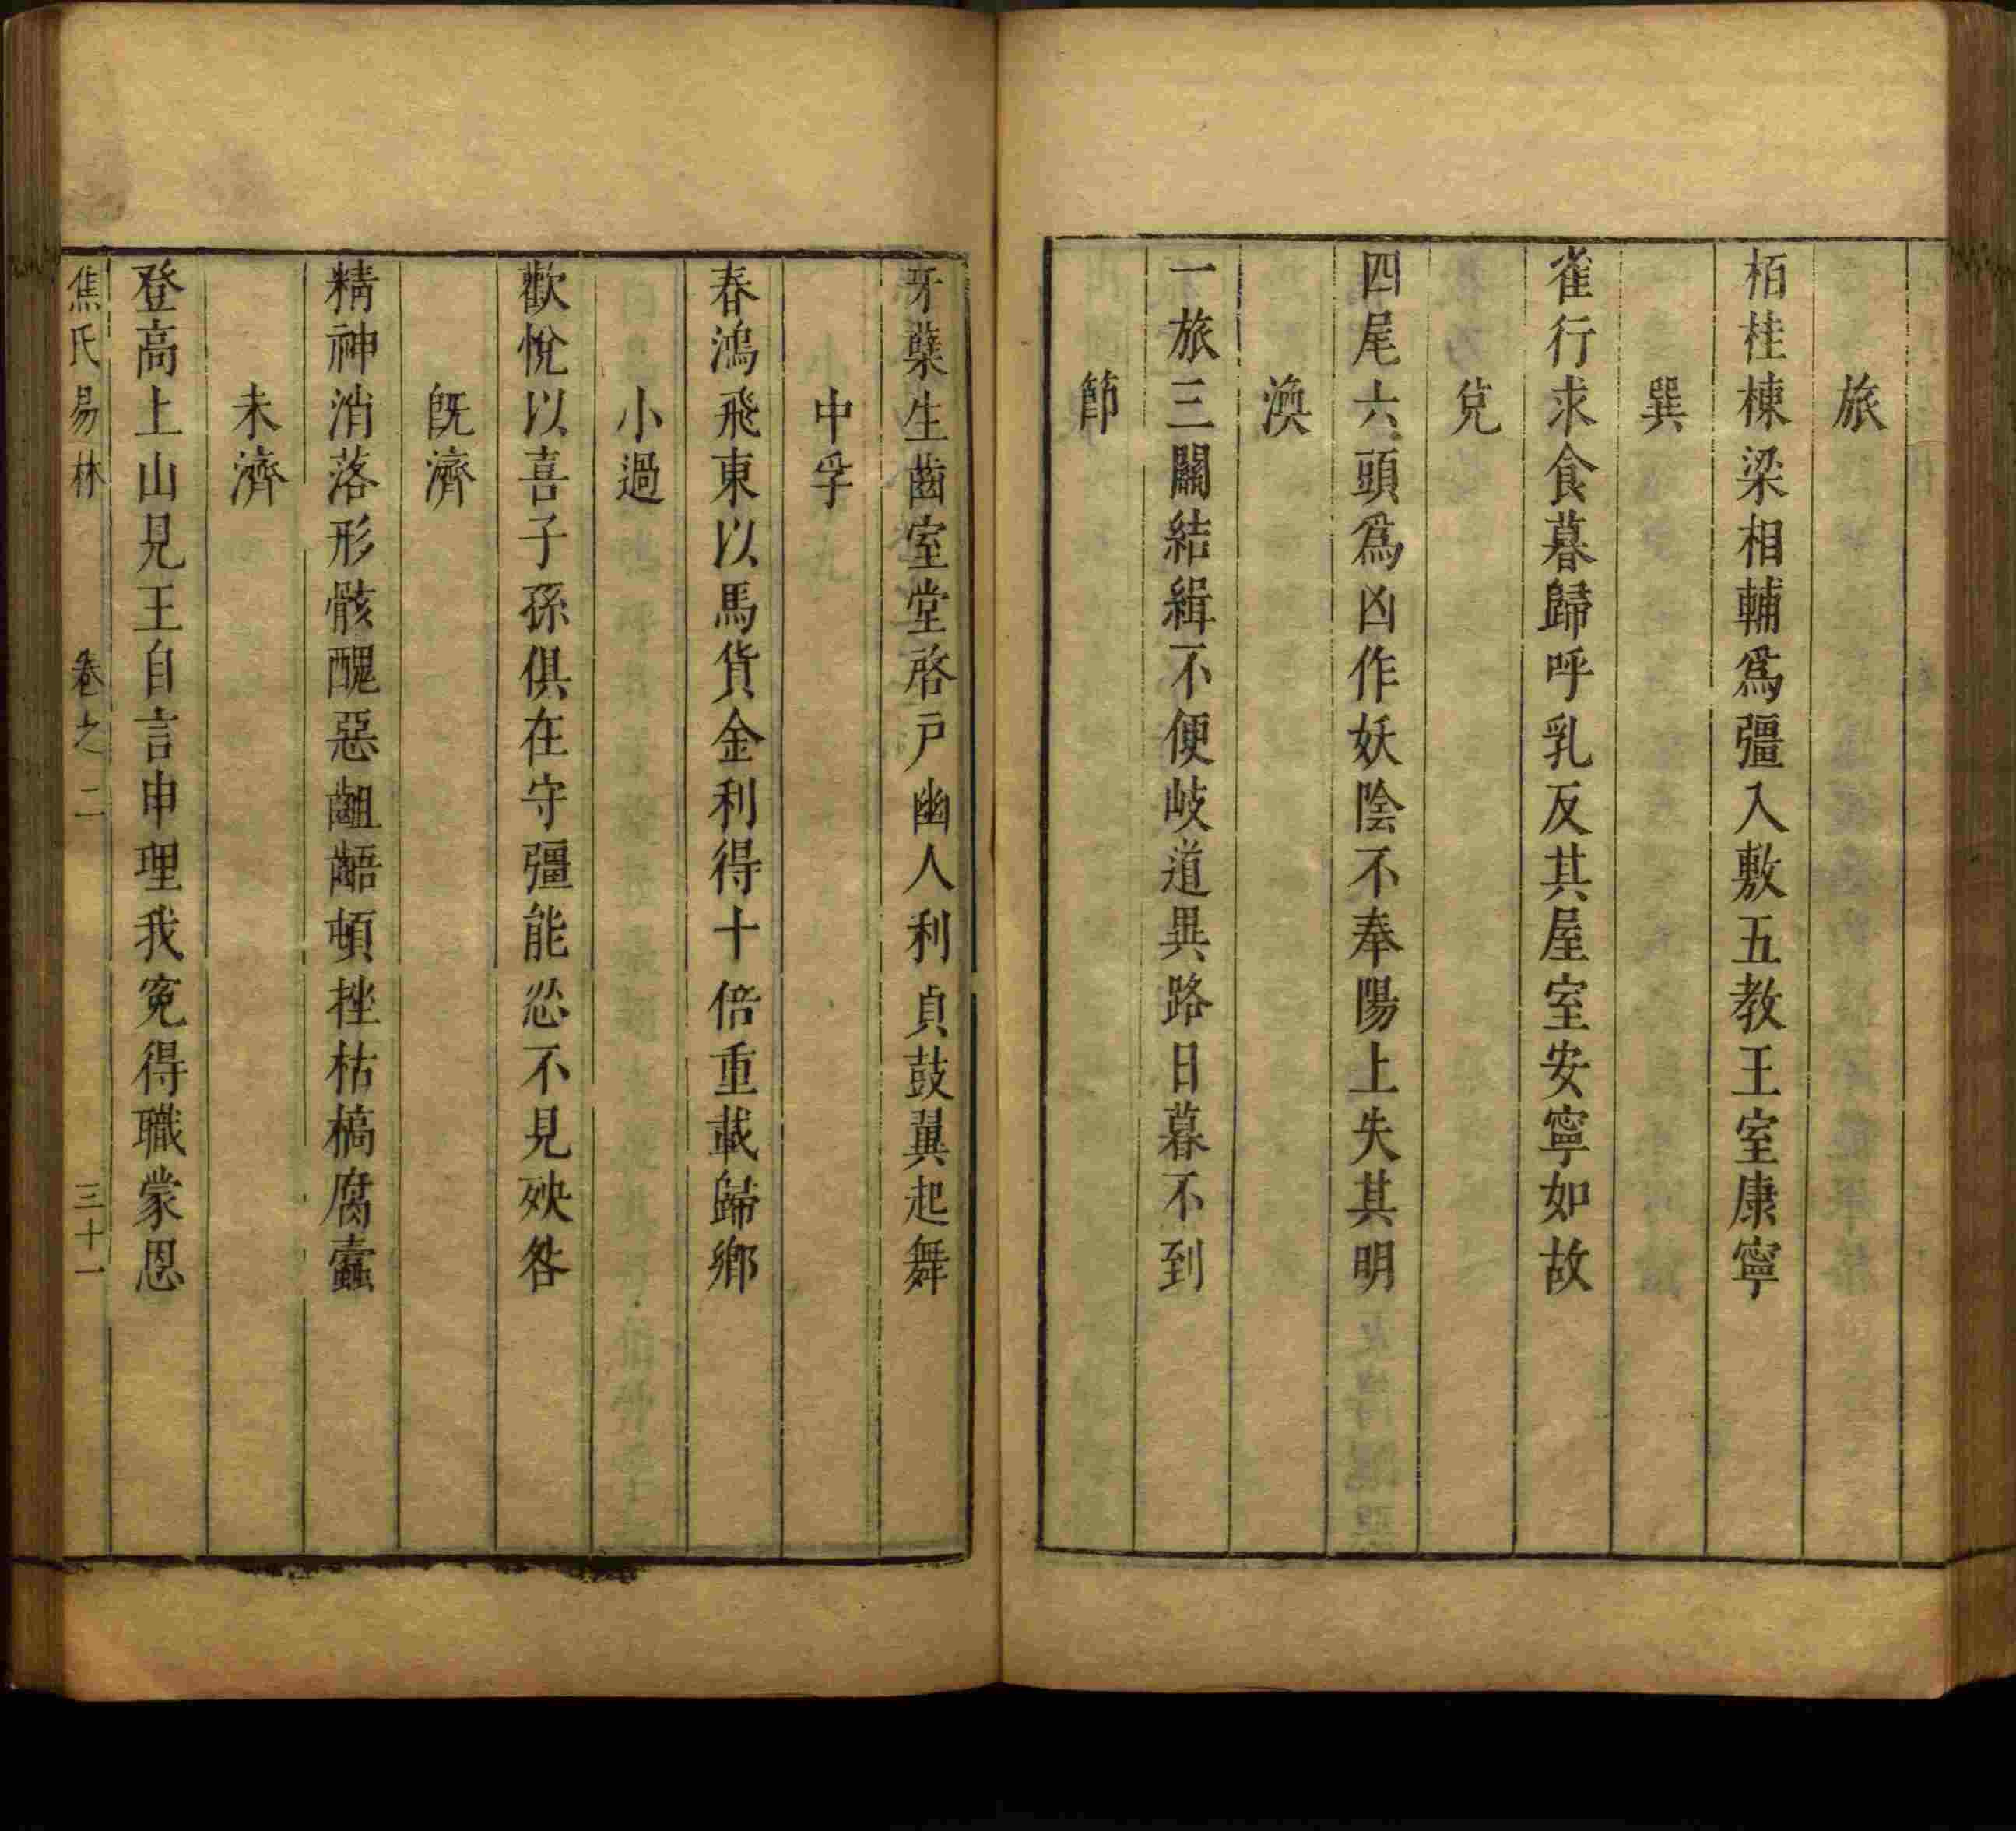 旅
栢桂棟梁相輔爲彊入敷五教王室康寧
巽
雀行求食暮歸呼乳反其屋室安寧如故
兌
四尾六頭爲凶作妖陰不奉陽上失其明
渙
一旅三關結緝不便岐道異路日暮不到
節
牙蘗生齒室堂啓戸幽人利貞鼓翼起舞
中孚
春鴻飛東以馬貨金利得十倍重載歸鄉
小過
歡悅以喜子孫俱在守彊能忍不見殃咎
旣濟
精神消落形骸醜惡齟齬頓挫枯槁腐蠹
未濟
登高上山見王自言申理我寃得職蒙恩
焦氏易林 卷之二 三十一